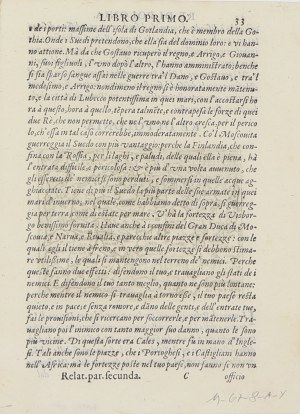 LIBRO PRIMO. 33
e de i porti: massime dell'isola di Gotlandia, che è membro della Go
thia. Onde i Suedi pretendono, che ella sia del dominio loro: e vi han-
no attione. Mà da che Gostauo ricuperò il regno, e Arrigo, e Giouan-
ni, suoi figliuoli, l'vno dopò l'altro, l'hanno amministrato; benche
si sia sparso sangue assai nelle guerre tra'l Dano, e Gostauo, e tra'l
medesimo, e Arrigo: nondimeno il regno si è honoratamente mātenu-
to, e la città di Lubecco potentissima in quei mari, con l'accostarsi ho
ra à questo, hora à quello, tēpera talmēte, e contrapesa le forze di quei
due Rè, che non permette, che ne l'vno ne l'altro cresca, per il perico
lo, ch'essa in tal caso correrebbe, immoderatamente. Co'l Moscouita
guerreggia il Suedo con più vantaggio: perche la Finlandia, che con-
fina con la Rossia, per i laghi, e paludi, delle quali ella è piena, hà
l'entrata difficile, e pericolosa: & è più d'vna volta auuenuto, che
gli esserciti de' nemici si sono perduti, e sommersi in quelle acque ag-
ghiacciate. Tiene di più il Suedo la più parte delle sue armate in quei
mari d'inuerno, nel quale, come habbiamo detto di sopra, si guerreg-
gia per terra e non di està per mare. V'hà la fortezza di Visbor-
go benissimo fornita. Hane anche à i confini del Gran Duca di Mosco-
uia e Narua, e Reualia, e parecchie altre piazze e fortezze: con le
quali egli il tiene à freno, e in vero quelle fortezze si debbono stima-
re vtilissime, le quali si mantengono nel terreno de' nemici. Perche
queste fanno due effetti: difendono il tuo, e trauagliano gli stati de i
nemici. E difendono il tuo tanto meglio, quanto ne sono più lontane:
perche mentre il nemico si trauaglia à torno esse, il tuo paese resta
quieto, e in pace, e senza rumore, e danno delle genti, e entrate tue,
fai le prouisioni, che si ricercano per soccorrerle, e per mātenerle. Tra-
uagliano poi l'inimico con tanto maggior suo danno, quanto le sono
più vicine. Di questa sorte era Cales, mentre fù in mano d'Ingle-
si. Tali anche sono le piazze, che i Portoghesi, e i Castigliani hanno
nell'Africa: mà le fortezze poste nel tuo paese, non fanno se non vn
Relat. par. secunda. C officio